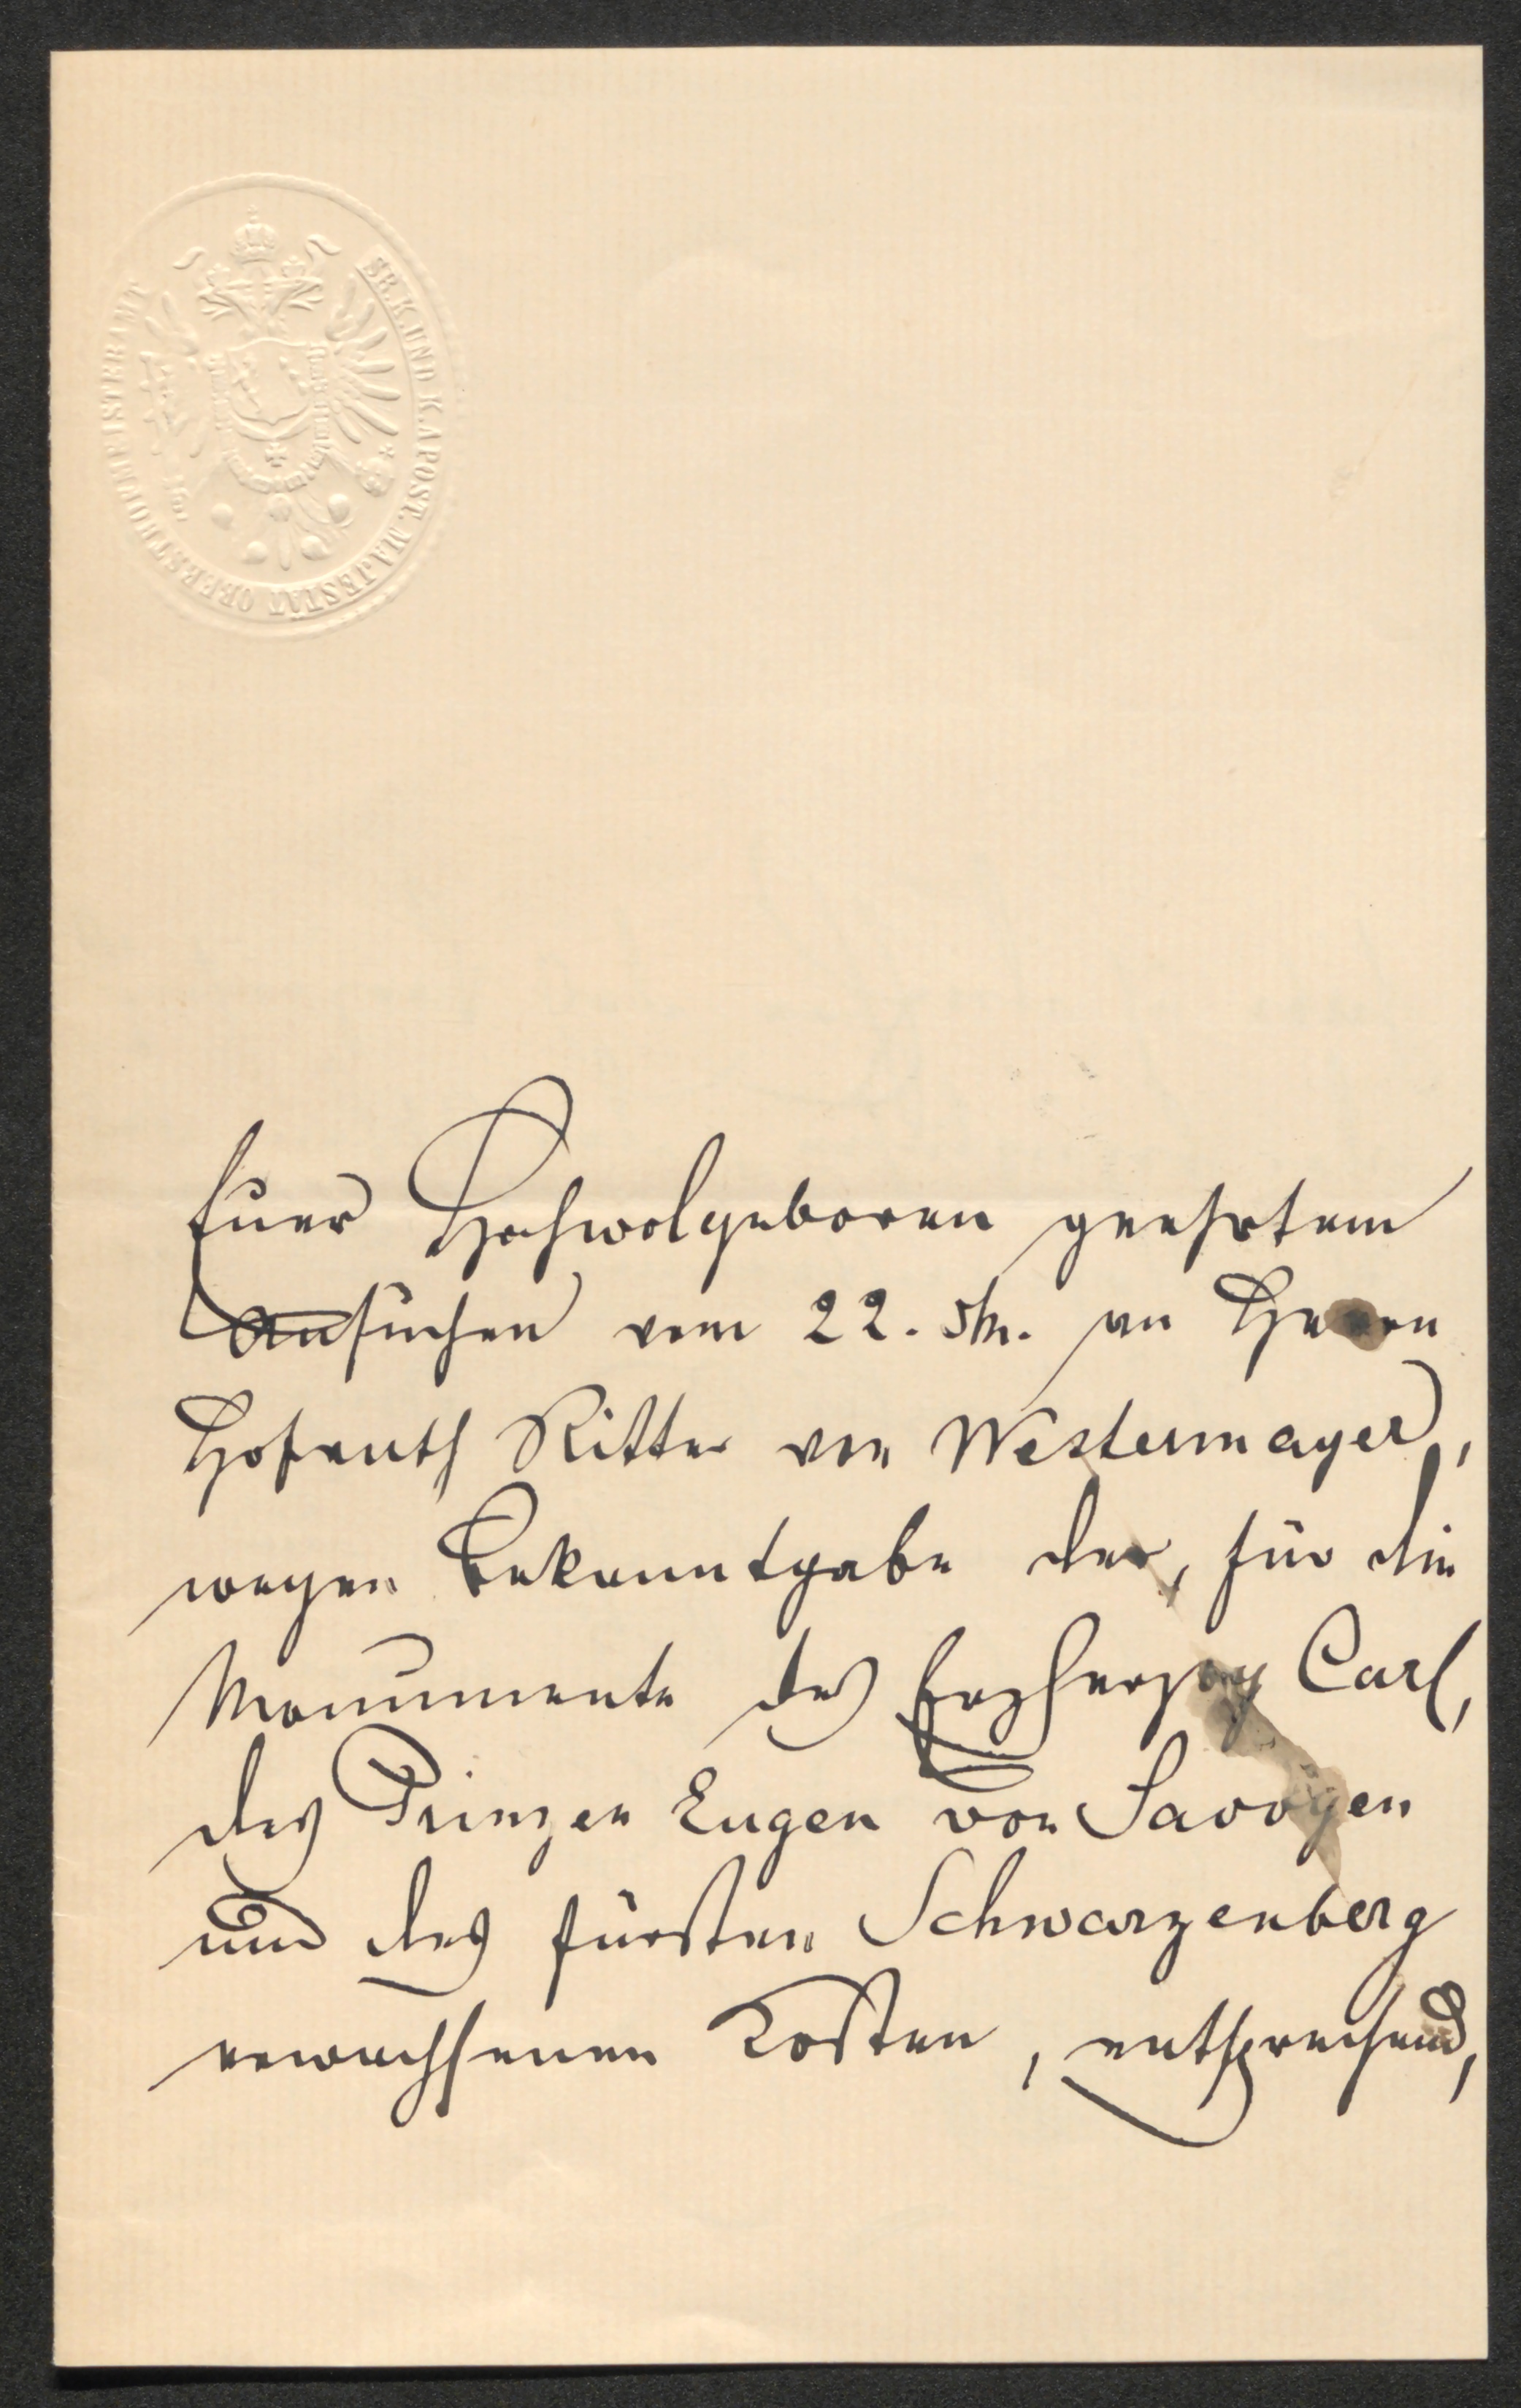 SR. K. UND K. APOST. MAJESTÄT OBERSTHOFMEISTERAMT
Euer Hochwolgeboren geehrtem
Ansuchen vom 22. d. M. an Herrn
Hofrath Ritter von Westermayer,
wegen Bekanntgabe der, für die
Monumente des Erzherzog Carl,
des Prinzen Eugen von Savoyen
und des Fürsten Schwarzenberg
erwachsenen Kosten, entsprechend,